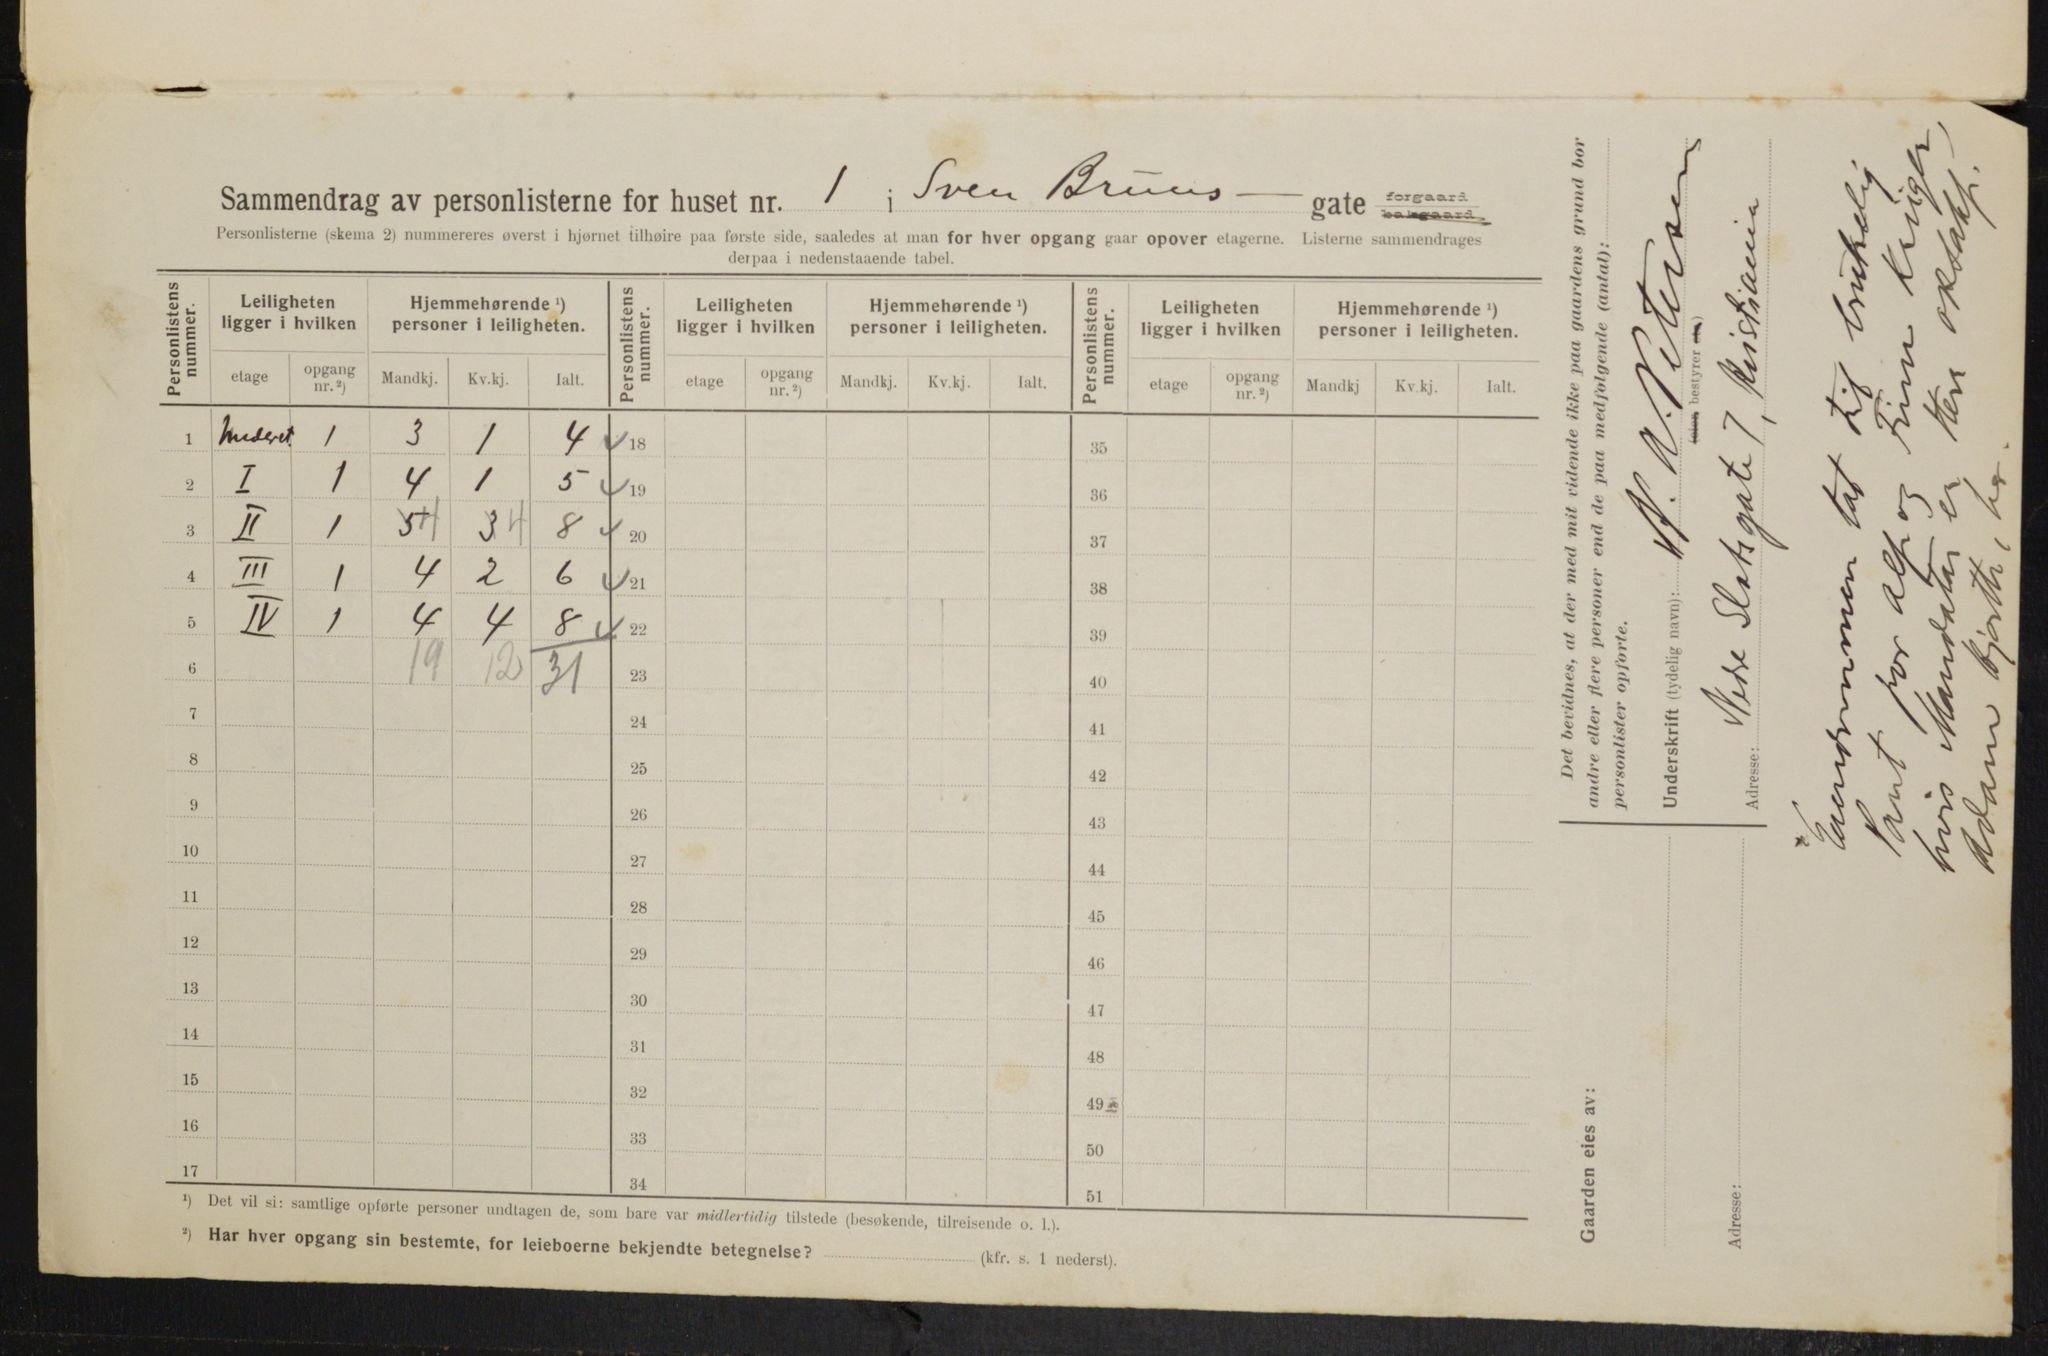 Sammendrag av personlisterne for huset nr. 1 i Sven Bruns gate forgaard bakgaard
Personlisterne (skema 2) nummereres øverst i hjørnet tilhøire paa første side, saaledes at man for hver opgang gaar opover etagerne. Listerne sammendrages
derpaa i nedenstaaende tabel.
Personlistens nummer. Leiligheten ligger i hvilken Hjemmehørende ¹) personer i leiligheten. Personlistens nummer. Leiligheten ligger i hvilken Hjemmehørende ¹) personer i leiligheten. Personlistens nummer. Leiligheten ligger i hvilken Hjemmehørende ¹) personer i leiligheten.
etage opgang nr. ²) Mandkj. Kv.kj. Ialt. etage opgang nr. ²) Mandkj. Kv.kj. Ialt. etage opgang nr. ²) Mandkj Kv.kj. Ialt.
1 Underet. 1 3 1 4 18 35
2 I 1 4 1 5 19 36
3 II 1 5 4 3 4 8 20 37
4 III 1 4 2 6 21 38
5 IV 1 4 4 8 22 39
6 19 12 31 23 40
7 24 41
8 25 42
9 26 43
10 27 44
11 28 45
12 29 46
13 30 47
14 31 48
15 32 49
16 33 50
17 34 51
¹) Det vil si: samtlige opførte personer undtagen de, som bare var midlertidig tilstede (besøkende, tilreisende o. l.).
²) Har hver opgang sin bestemte, for leieboerne bekjendte betegnelse? (kfr. s. 1 nederst).
Det bevidnes, at der med mit vidende ikke paa gaardens grund bor
andre eller flere personer end de paa medfølgende (antal):
personlister opførte.
Underskrift (tydelig navn): N. A. Petersen
(eiers bestyrer
Adresse: Nedre Slotsgate 7, Kristiania
Gaarden eies av:
Adresse:
Eiendommen tat til brukelig
Pant for Alf og Finn Kriger
hvis Mandatar er Herr oksakf.
Adam Hjorth, her.